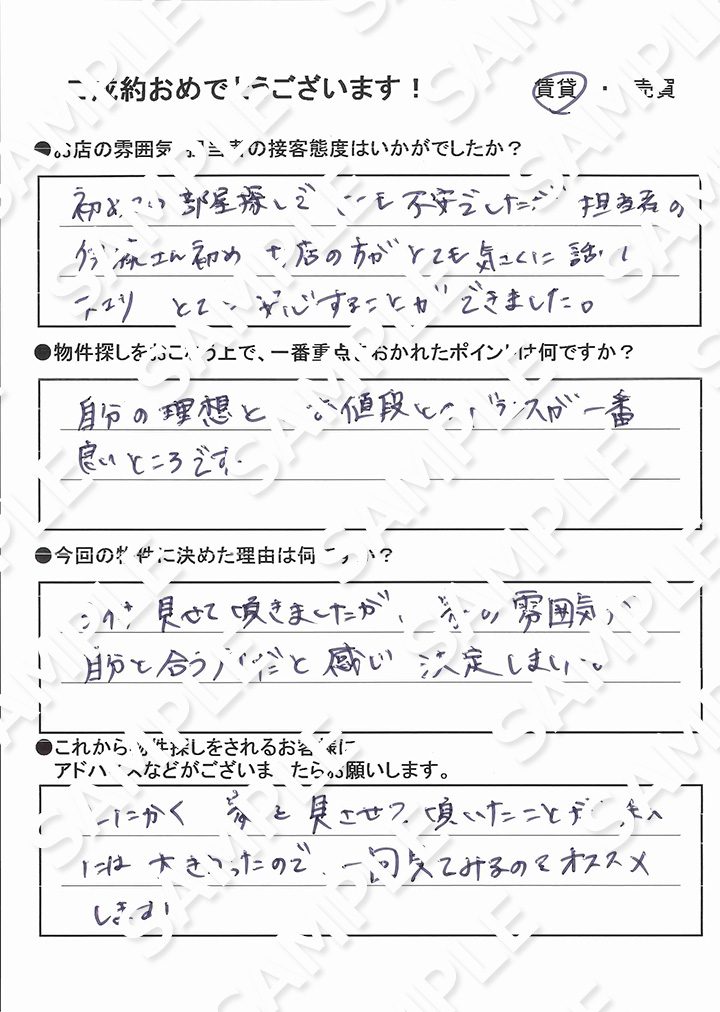 ご成約おめでとうございます！
賃貸 ・ 売買
●お店の雰囲気、担当者の接客態度はいかがでしたか？
初めての部屋探しで とても不安でしたが 担当者の
さん初め お店の方がとても気さくに話し
とても安心することができました。
●物件探しをおこなう上で、一番重点をおかれたポイントは何ですか？
自分の理想と お値段とのバランスが一番
良いところです。
●今回の物件に決めた理由は何ですか？
見せて頂きましたが、 家の雰囲気が
自分と合う だと感じ 決定しました。
●これから物件探しをされるお客様に
アドバイスなどがございましたらお願いします。
とにかく 家を見させて頂いたことが
には大きかったので、一回見てみるのをオススメ
します
SAMPLE